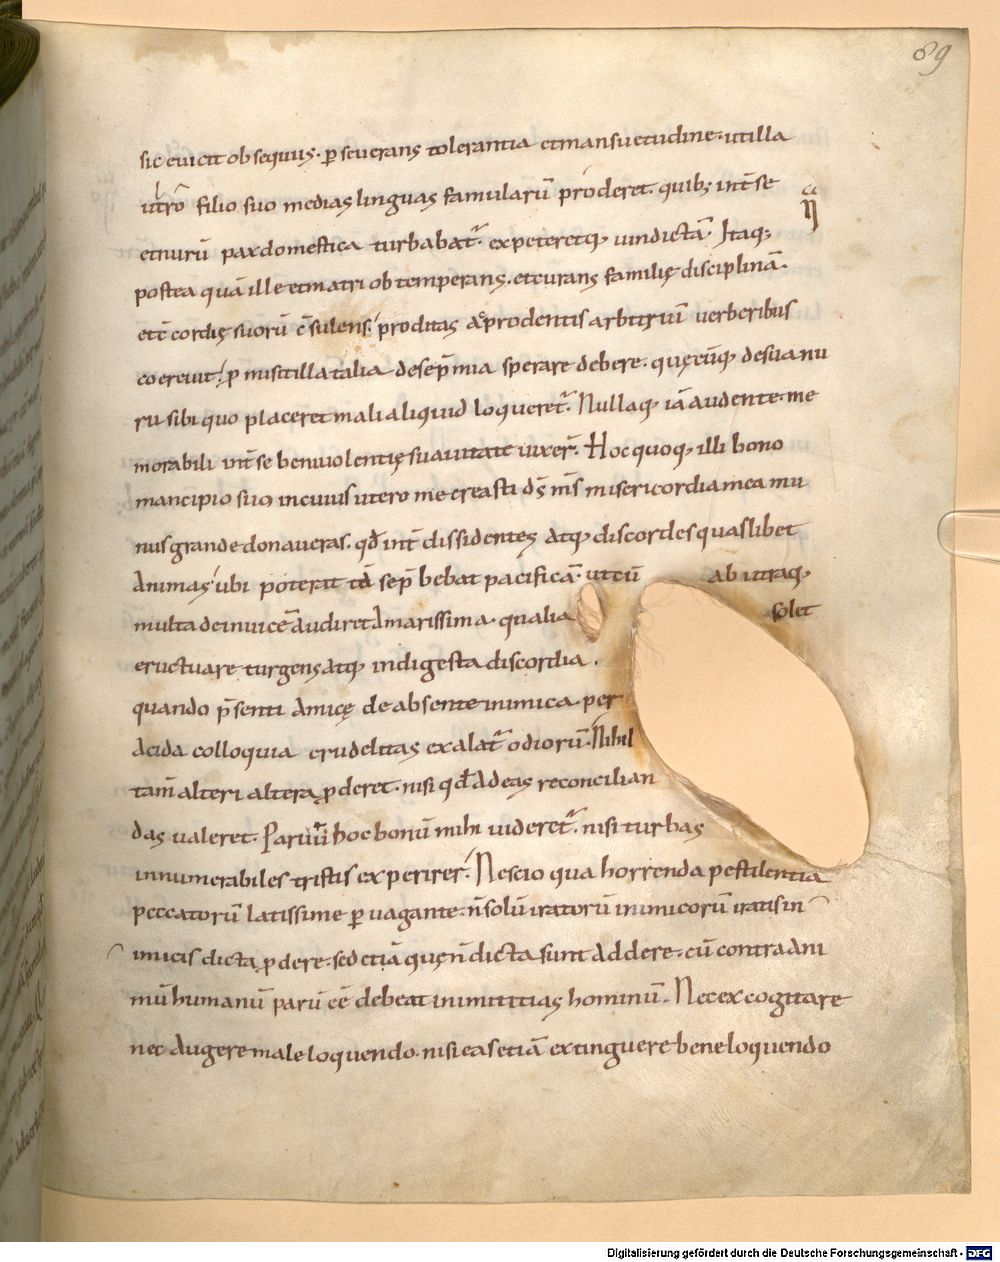 89
sic euicit obsequiis· p̱seuerans tolerantia etmansuetudine· utilla
ultro filio suo medias linguas famularū proderet· quib; int̄ se
etnurū pax domestica turbabat᷑· expeteretq; uindictā· Itaq;
postea quā ille etmatri obtemperans· etcurans familię disciplinā·
et c̄cordię suorū c̄sulens· proditas ad prodentis arbitriū uerberibus
coercuit· p̱misit illa talia dese p̄mia sperare debere· quęcūq; desua nu
ru sibi quo placeret mali aliquid loqueret᷑· Nullaq; iā audente· me
morabili int̄ se beniuolentię suauitate uixer̄· Hoc quoq; illi bono
mancipio tuo incuius utero me creasti d̄s m̄s misericordia mea mu
nus grande donaueras· qd̄ int̄ dissidentes atq; discordes quaslibet
animas· ubi poterat tā se p̄bebat pacificā· ut cū ab utraq;
multa deinuicē audiret amarissima· qualia solet
eructuare turgens atq; indigesta discordia·
quando p̄senti amicę de absente inimica· per
acida colloquia crudelitas exalat᷑ odiorū· Nihil
tam̄ alteri altera p̱deret· nisi qd̄ ad eas reconcilian
das ualeret· Paruū hoc bonū mihi uideret᷑· nisi turbas
innumerabiles tristis experirer· Nescio qua horrenda pestilentia
peccatorū latissime p̱uagante· n̄ solū iratorū inimicorū iratis in
imicis dicta p̱dere· sed etiā quę n̄ dicta sunt addere· cū contra ani
mū humanū parū eē debeat inimicitias hominū· Nec excogitare
nec augere male loquendo· nisi eas etiā extinguere bene loquendo
Digitalisierung gefördert durch die Deutsche Forschungsgemeinschaft - DFG